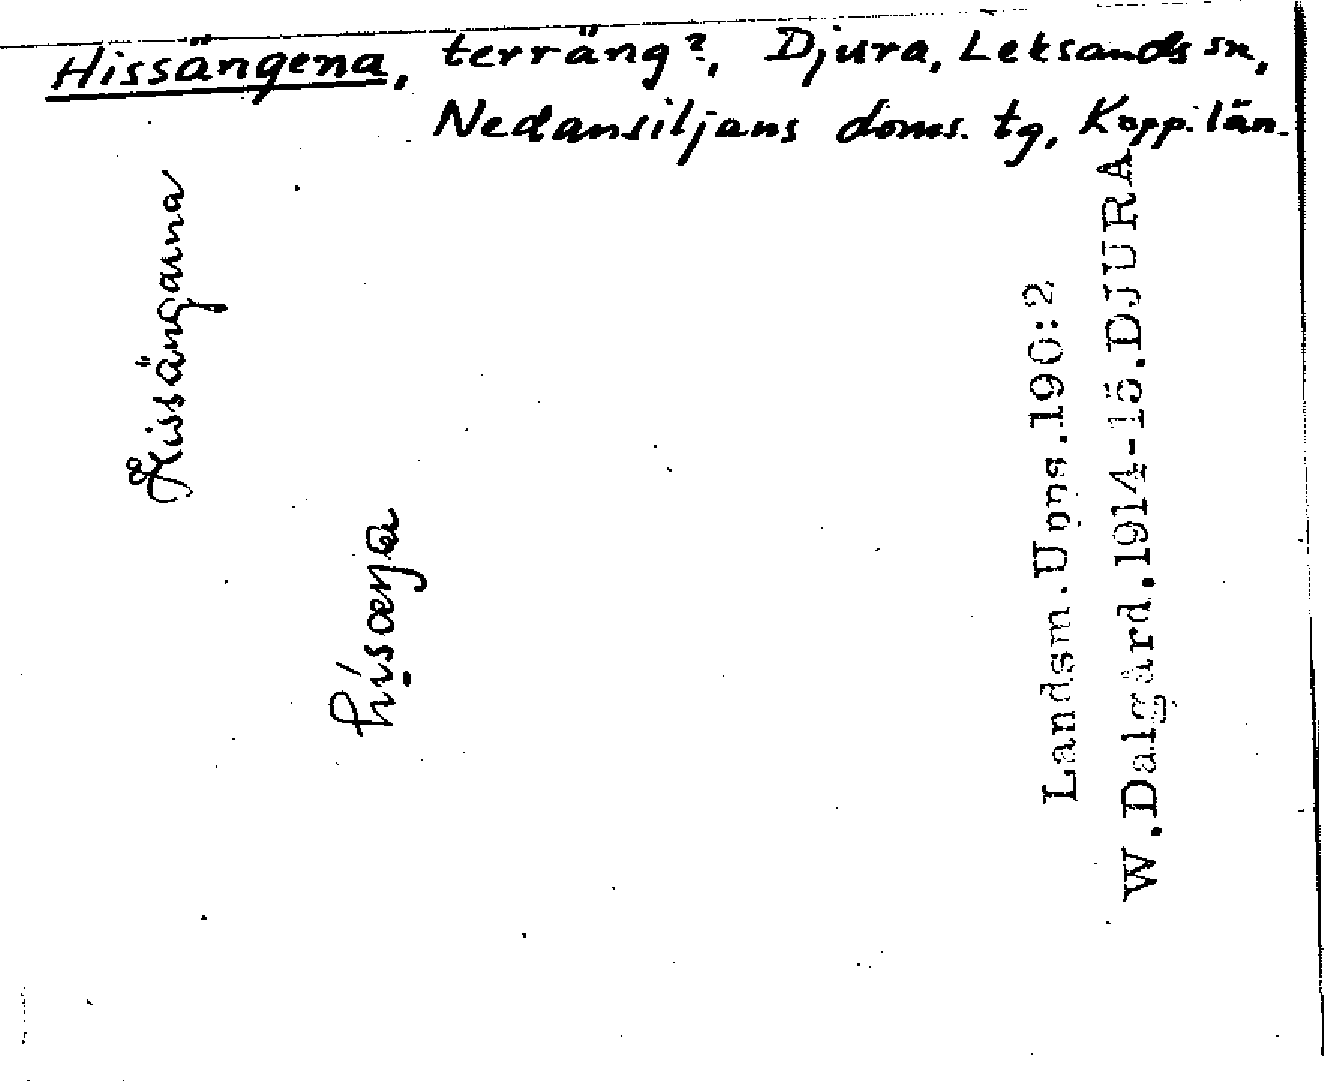 Hissängena, terräng?, Djura, Leksands sn,
Nedansiljans doms. tg, Kopp. län.
Hissängarna
Landsm. Upps. 190:2
W. Dalgård. 1914-15. DJURA